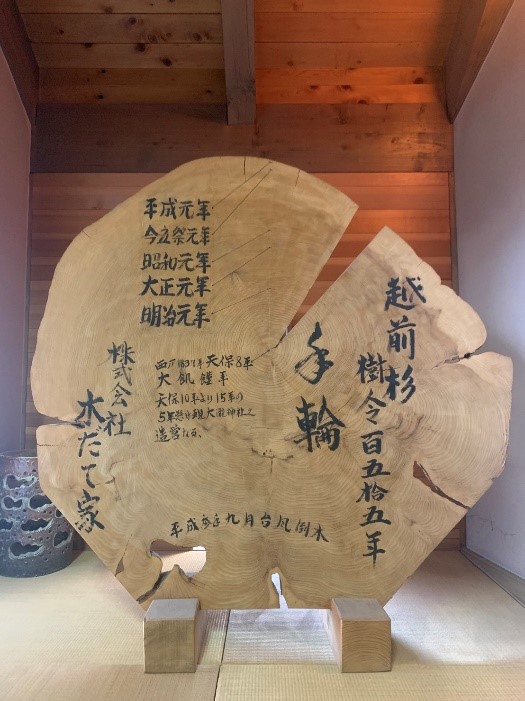 越前杉
樹令百五拾五年
年輪
平成元年
今立祭元年
昭和元年
大正元年
明治元年
西厂1837年天保8年
大飢饉年
天保10年より15年の
5年懸り現大瀧神社
造営なる、
平成参年九月台風倒木
株式会社
木たて家